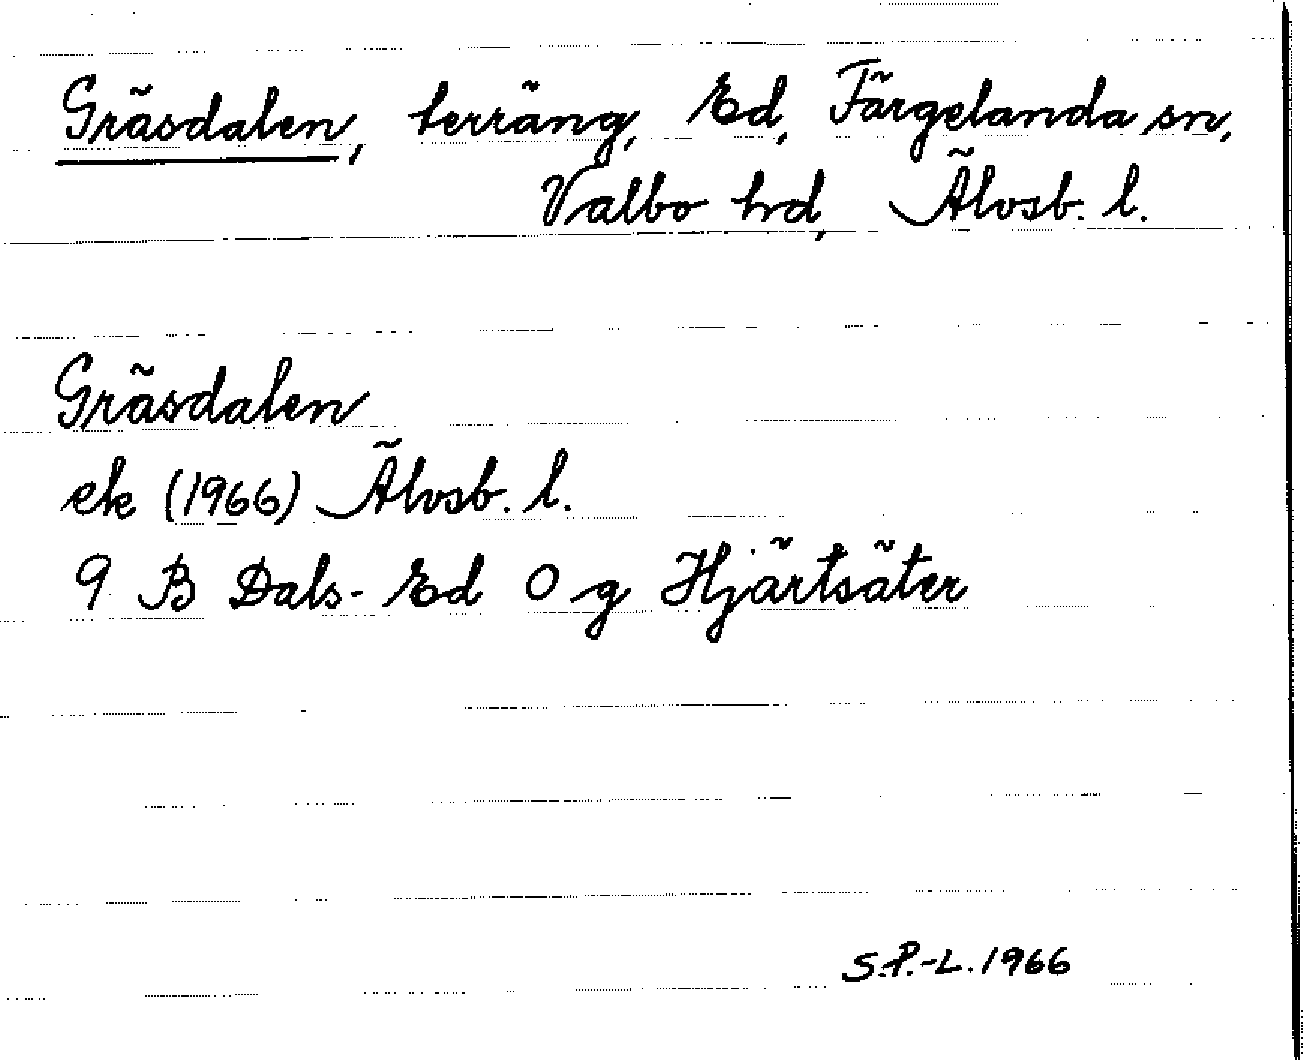 Gräsdalen, terräng, Ed, Färgelanda sn,
Valbo hd, Älvsb. l.
Gräsdalen
ek (1966) Älvsb. l.
9 B Dals-Ed 0 g Hjärtsäter
S.P.-L. 1966